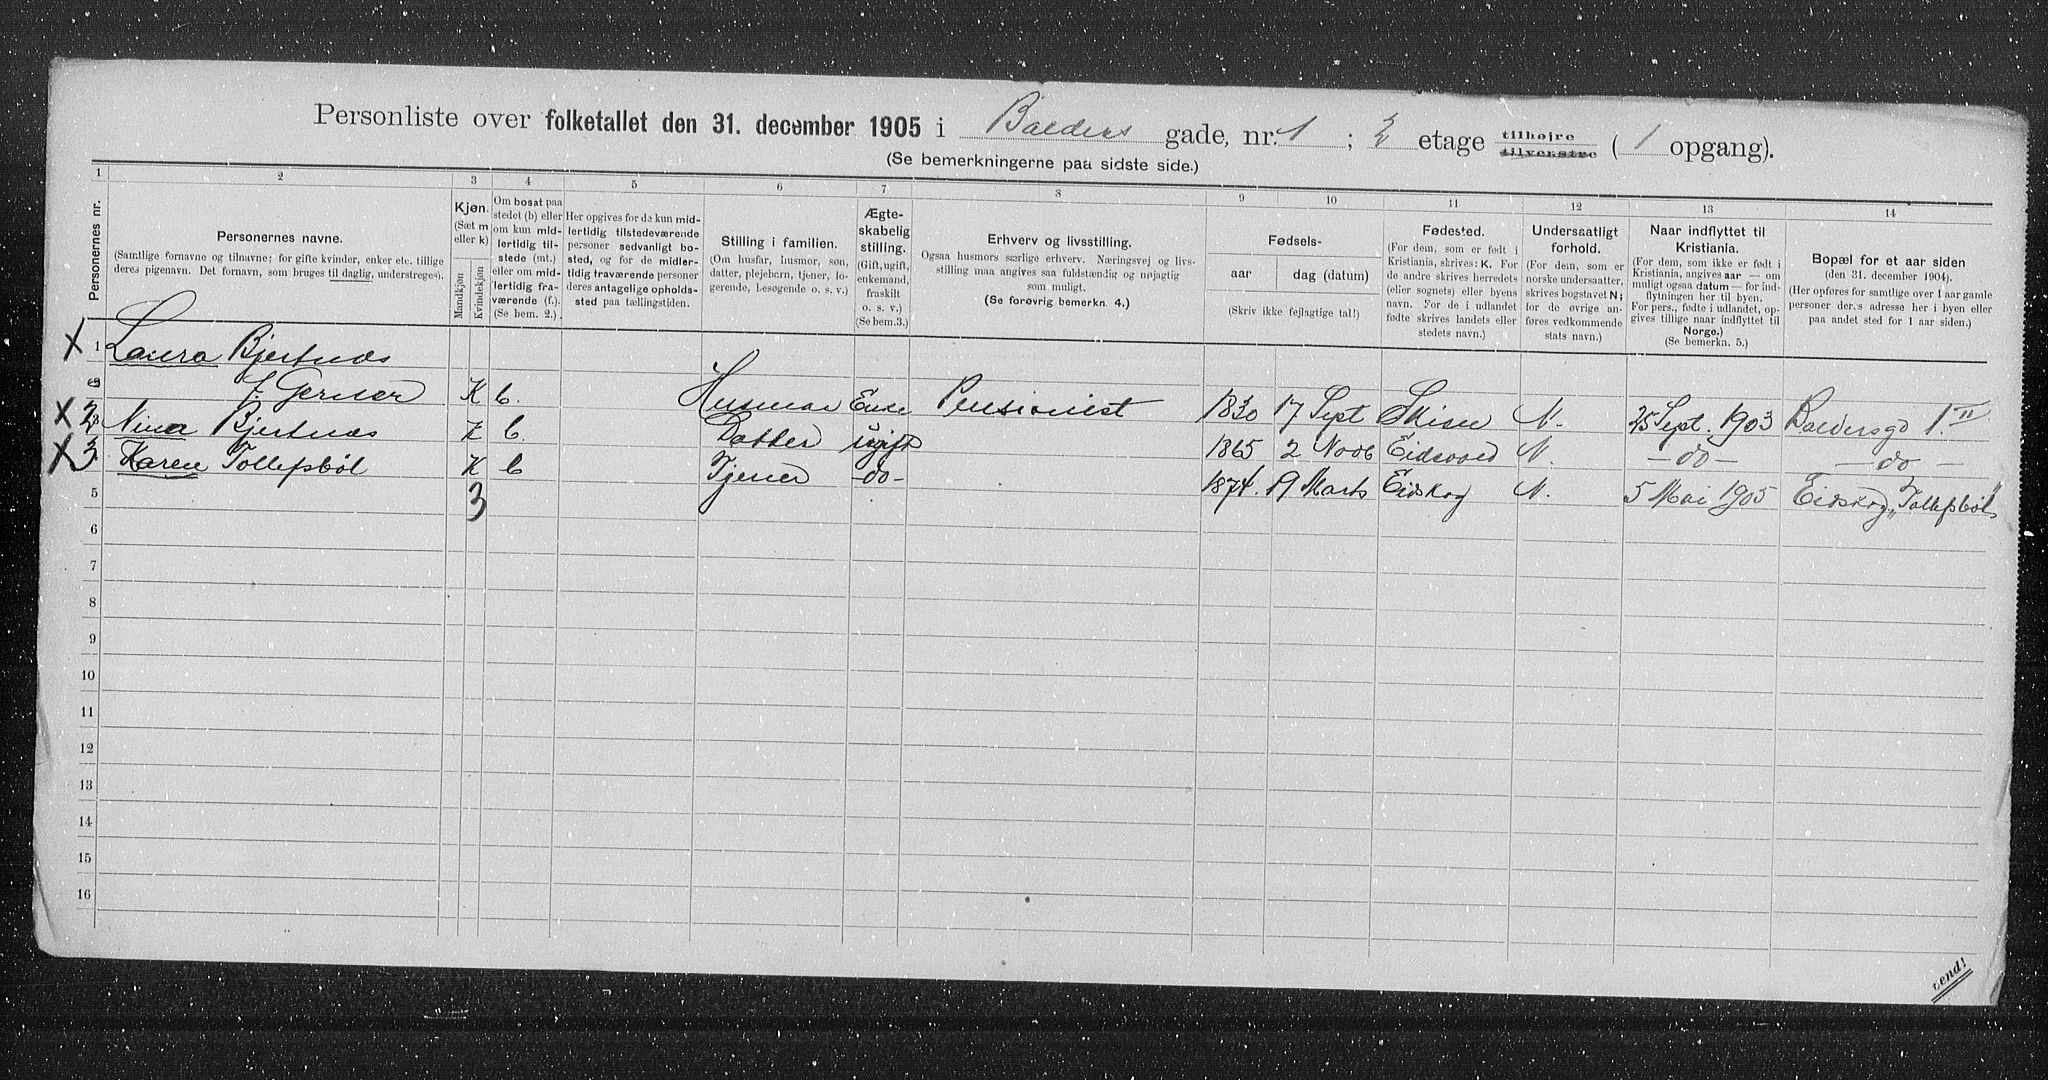 Personliste over folketallet den 31. december 1905 i Balders gade, nr. 1 ; 2 etage tilhøjre tilvenstre ( 1 opgang).
(Se bemerkningerne paa sidste side.)
1 2 3 4 5 6 7 8 9 10 11 12 13 14
Personernes nr.
Personernes navne.
(Samtlige fornavne og tilnavne; for gifte kvinder, enker etc. tillige
deres pigenavn. Det fornavn, som bruges til daglig, understreges).
Kjøn.
(Sæt m
eller k)
Mandkjøn
Kvindekjøn
Om bosat paa
stedet (b) eller
om kun mid-
lertidig til-
stede (mt.)
eller om mid-
lertidig fra-
værende (f.).
(Se bem. 2.)
Her opgives for da kun mid-
lertidig tilstedeværende
personer sedvanligt bo-
sted, og for de midler-
tidig fraværende personer
deres antagelige opholds-
sted paa tællingstiden.
Stilling i familien.
(Om husfar, husmor, søn,
datter, plejebarn, tjener, lo-
gerende, besøgende o. s. v.)
Ægte-
skabelig
stilling.
(Gift, ugift,
enkemand,
fraskilt
o. s. v.)
(Se bem. 3.)
Erhverv og livsstilling.
Ogsaa husmors særlige erhverv. Næringsvej og livs-
stilling maa angives saa fuldstændig og nøjagtig
som muligt.
(Se forøvrig bemerkn. 4.)
Fødsels-
aar dag (datum)
(Skriv ikke fejlagtige tal!)
Fødested.
(For dem, som er født i
Kristiania, skrives: K. For
de andre skrives herredets
(eller sognets) eller byens
navn. For de i udlandet
fødte skrives landets eller
stedets navn.)
Undersaatligt
forhold.
(For dem, som er
norske undersaatter,
skrives bogstavet N;
for de øvrige an-
føres vedkommende
stats navn.)
Naar indflyttet til
Kristiania.
(For dem, som ikke er født i
Kristiania, angives aar — om
muligt ogsaa datum — for ind-
flytningen her til byen.
For pers., fødte i udlandet, op-
gives tillige naar indflyttet til
Norge.)
(Se bemerkn. 5.)
Bopæl for et aar siden
(den 31. december 1904).
(Her opføres for samtlige over 1 aar gamle
personer deres adresse her i byen eller
paa andet sted for 1 aar siden.)
X 1 Laura Bjertnæs
f. Gerner K b. Husmor Enke Pensionist 1830 17 Sept Skien N. 25 Sept. 1903 Baldersgd 1.II
X 2 Nina Bjertnæs K b. Datter ugift 1865 2 Novb Eidsvold N. — do — — do —
X 3 Karen Tollefsbøl K b Tjener - do - 1874. 19 Marts Eidskog N. 5 Mai 1905 Eidskog „Tollefsbøl"
5 3
6
7
8
9
10
11
12
13
14
15
16
vend!